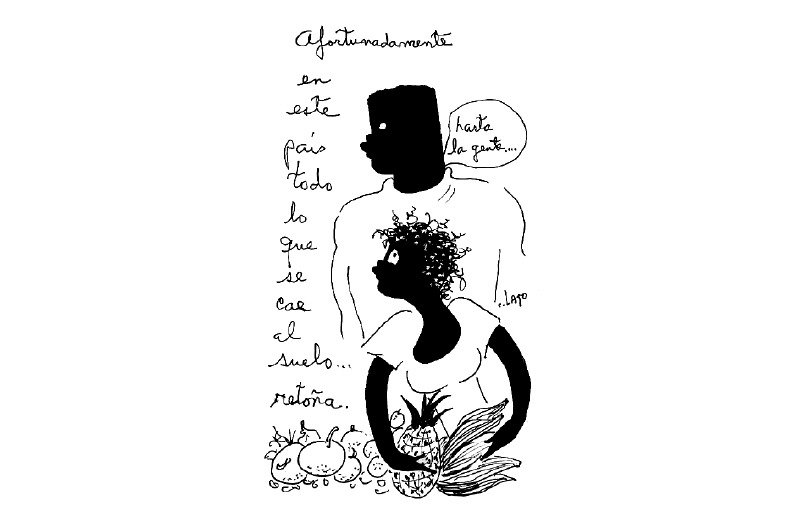 Afortunadamente
en
este
país
todo
lo
que
se
cae
al
suelo...
retoña.
hasta
la gente....
..LAGO